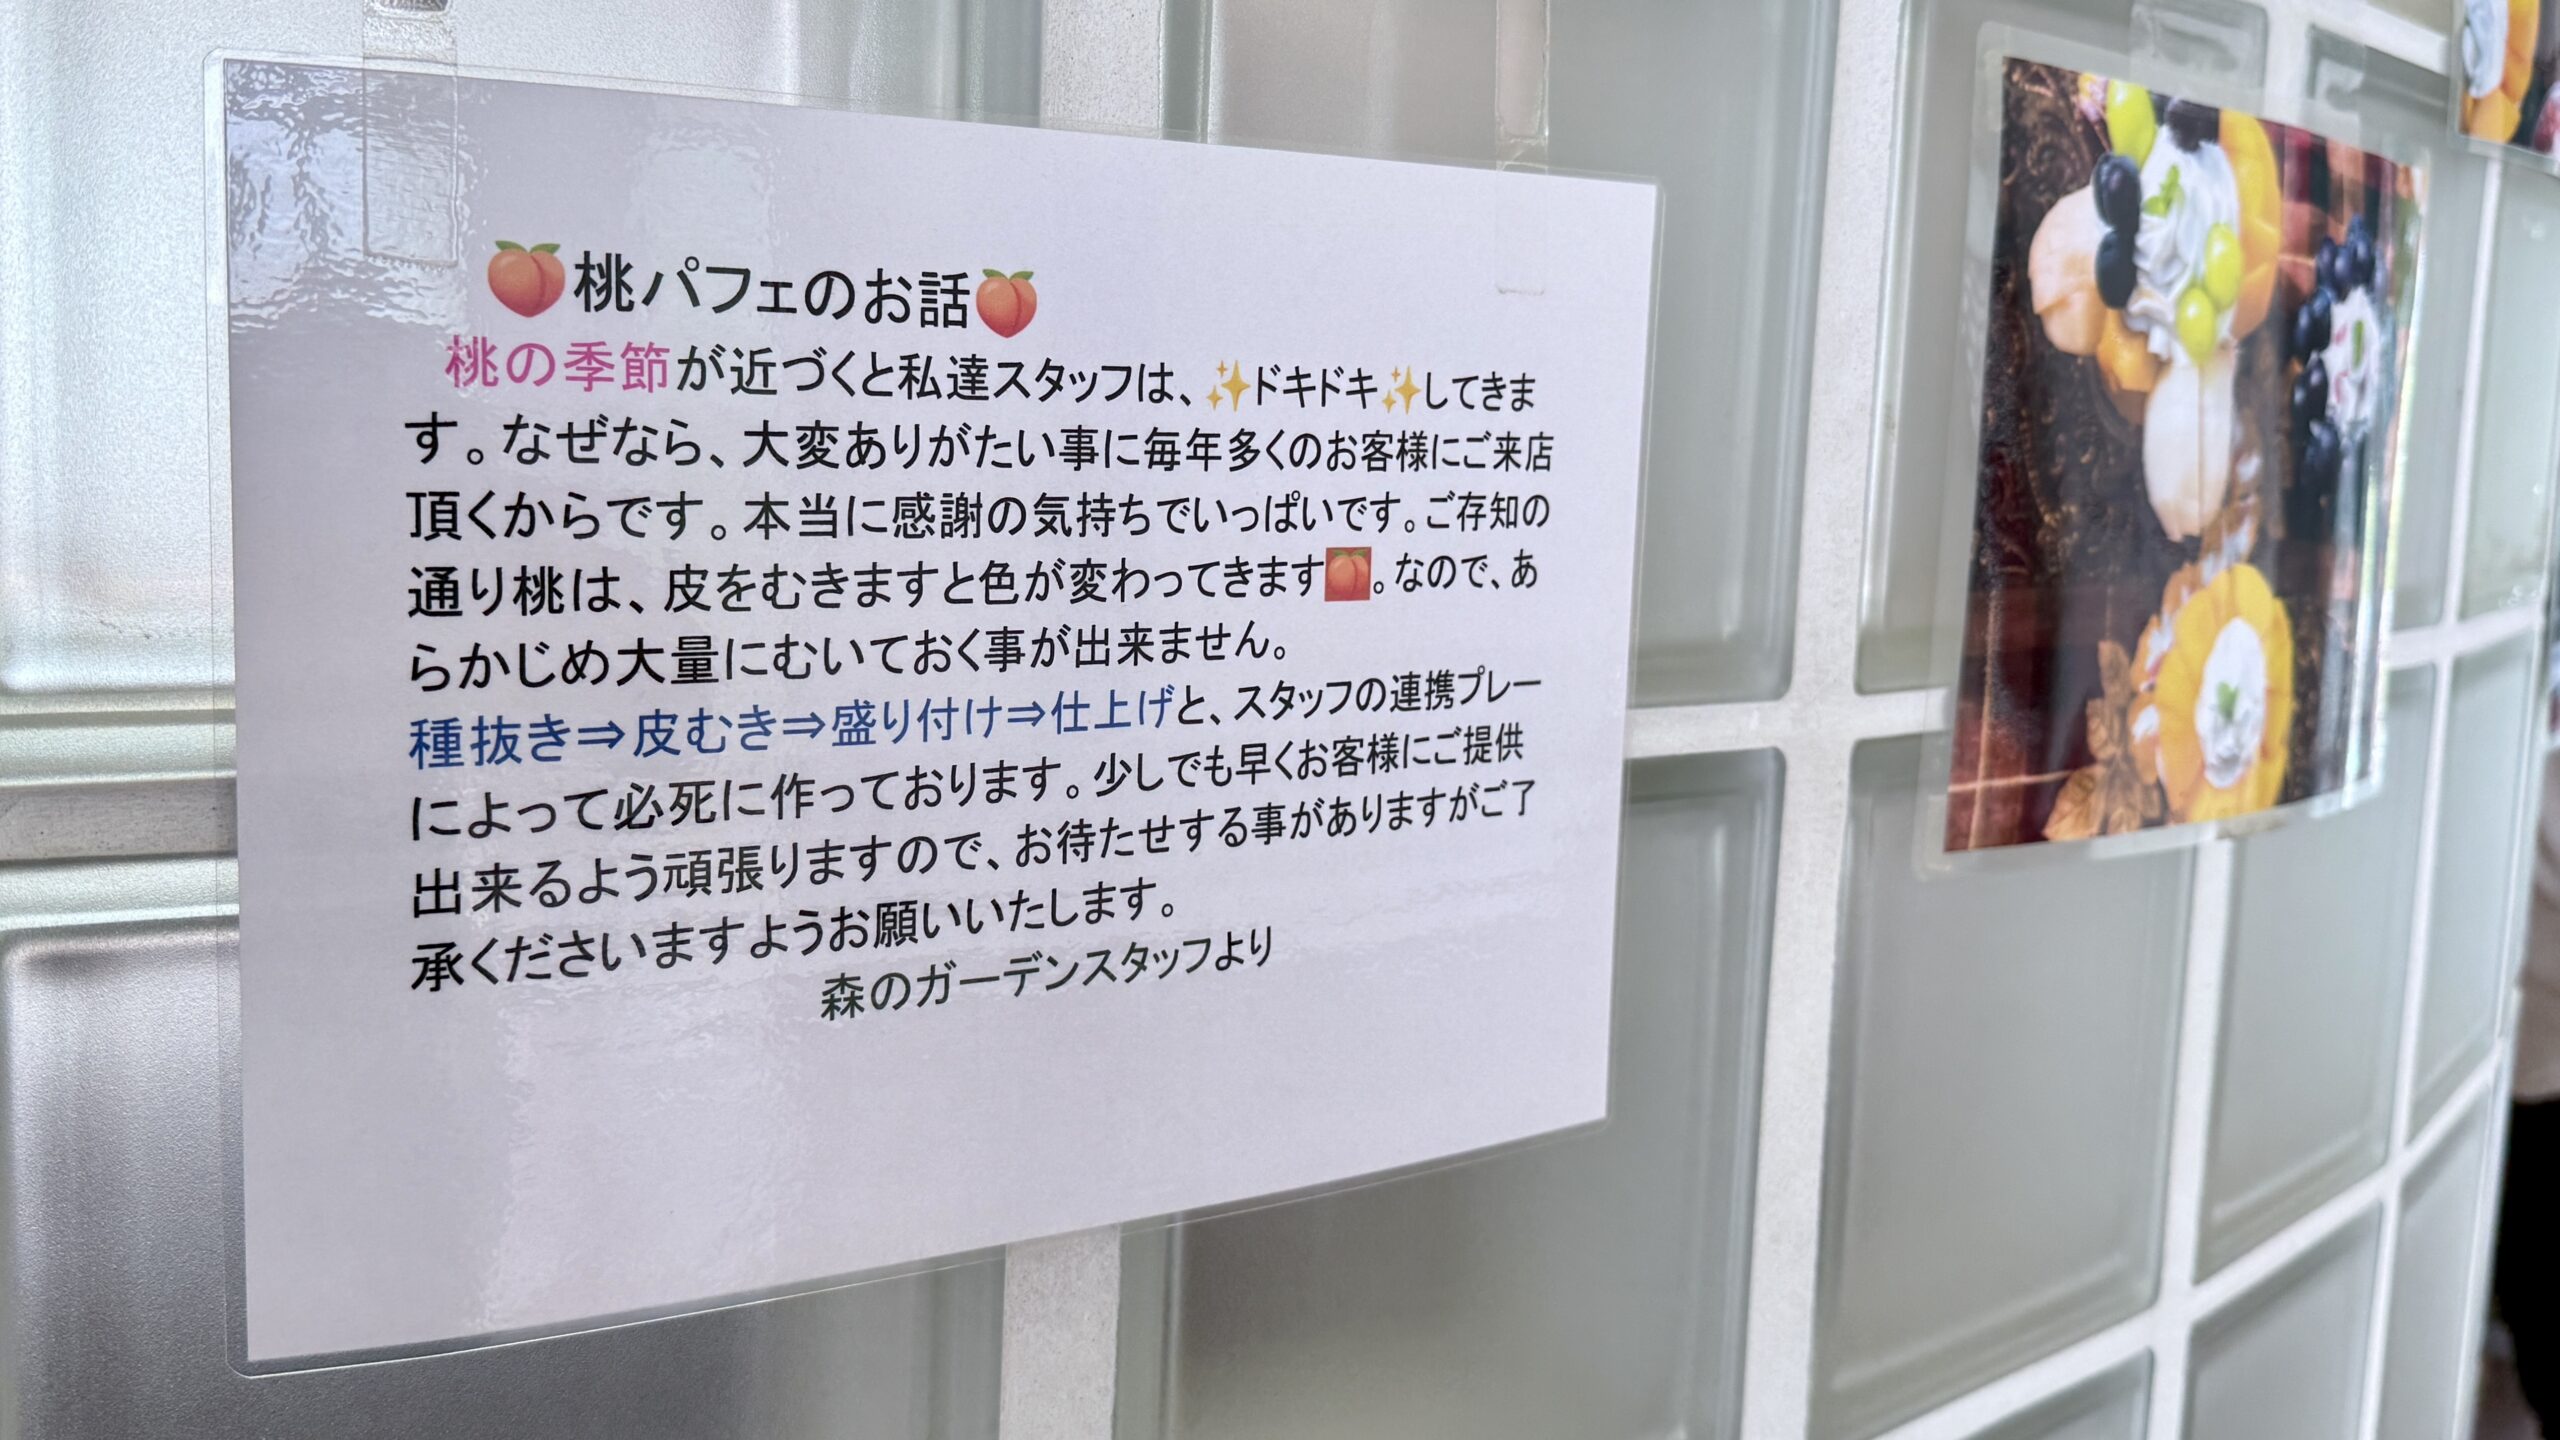 🍑桃パフェのお話🍑
桃の季節が近づくと私達スタッフは、✨ドキドキ✨してきま
す。なぜなら、大変ありがたい事に毎年多くのお客様にご来店
頂くからです。本当に感謝の気持ちでいっぱいです。ご存知の
通り桃は、皮をむきますと色が変わってきます🍑。なので、あ
らかじめ大量にむいておく事が出来ません。
種抜き⇒皮むき⇒盛り付け⇒仕上げと、スタッフの連携プレー
によって必死に作っております。少しでも早くお客様にご提供
出来るよう頑張りますので、お待たせする事がありますがご了
承くださいますようお願いいたします。
森のガーデンスタッフより